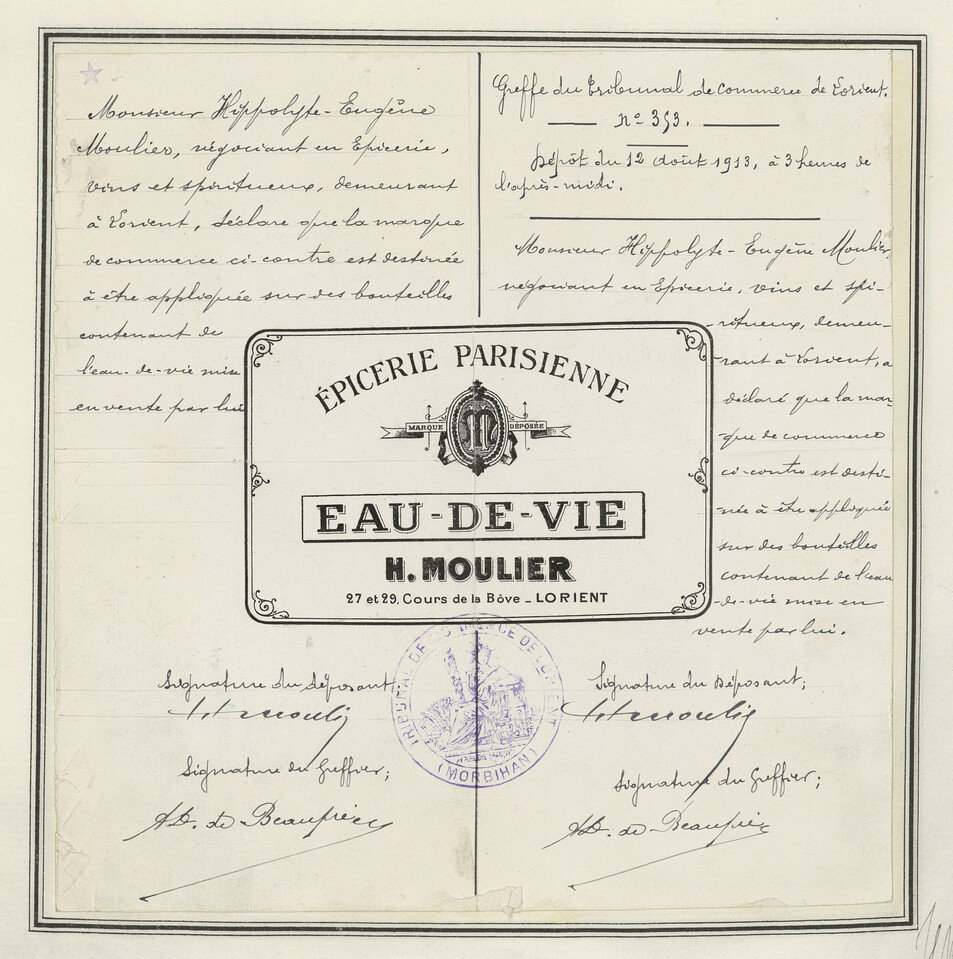 Monsieur Hippolyte-Eugène
Moulier, négociant en Epicerie,
vins et spiritueux, demeurant
à Lorient, déclare que la marque
de commerce ci-contre est destinée
à être appliquée sur des bouteilles
contenant de
l'eau-de-vie mise
en vente par lui
Greffe du Tribunal de commerce de Lorient.
N° 353.
Dépôt du 12 Août 1913, à 3 heures de
l'après-midi.
Monsieur Hippolyte-Eugène Moulier,
négociant en Epicerie, vins et spi-
ritueux, demeu-
rant à Lorient, a
déclaré que la mar-
que de commerce
ci-contre est desti-
née à être appliquée
sur des bouteilles
contenant de l'eau
-de-vie mise en
vente par lui.
ÉPICERIE PARISIENNE
MARQUE DÉPOSÉE
M
EAU-DE-VIE
H. MOULIER
27 et 29, Cours de la Bôve _ LORIENT
TRIBUNAL DE COMMERCE DE LORIENT
(MORBIHAN)
Signature du déposant
H Moulier
Signature du Greffier;
Signature du Déposant;
H Moulier
Signature du Greffier;